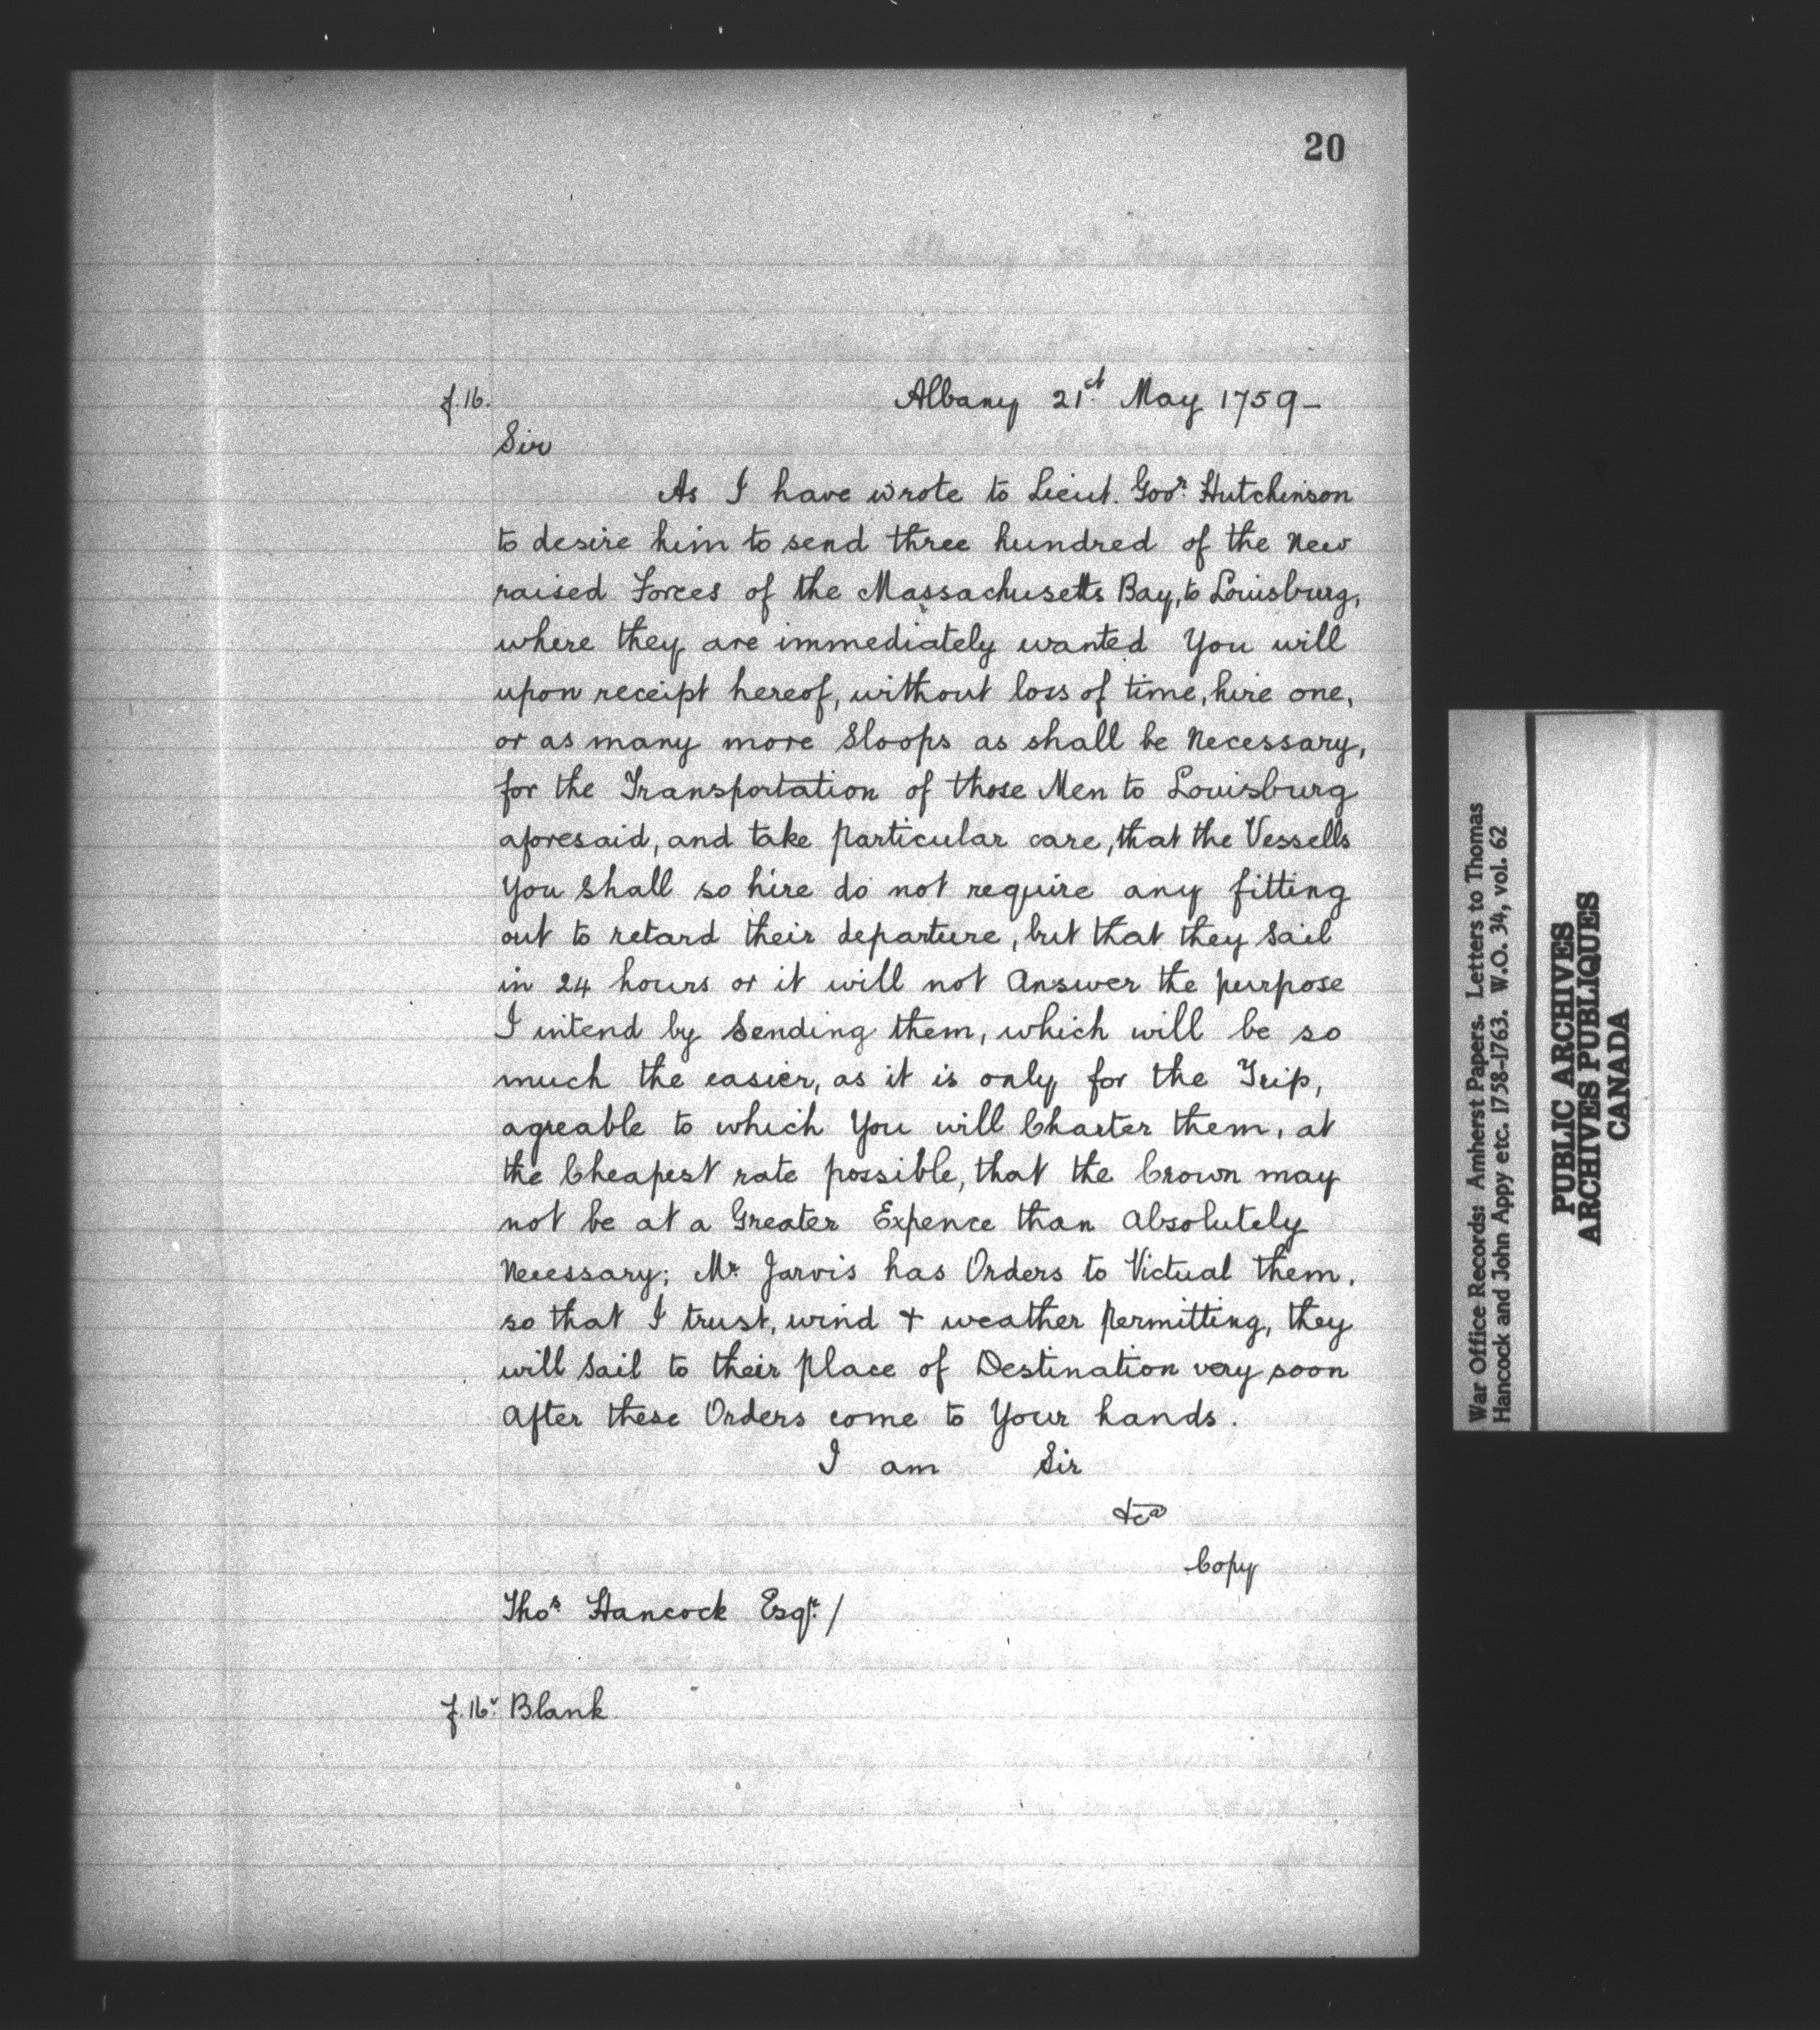 20
f.16. Albany 21st May 1759-
Sir
As I have wrote to Lieut. Govr. Hutchinson
to desire him to send three hundred of the New
raised Forces of the Massachusetts Bay, to Louisburg,
where they are immediately wanted You will
upon receipt hereof, without loss of time, hire one,
or as many more Sloops as shall be Necessary,
for the Transportation of those Men to Louisburg
aforesaid, and take particular care, that the Vessells
You shall so hire do not require any fitting
out to retard their departure, but that they sail
in 24 hours or it will not Answer the purpose
I intend by Sending them, which will be so
much the easier, as it is only for the Trip,
agreable to which You will Charter them, at
the Cheapest rate possible, that the Crown may
not be at a Greater Expence than Absolutely
Necessary; Mr. Jarvis has Orders to Victual them,
so that I trust, wind & weather permitting, they
will Sail to their Place of Destination very soon
After these Orders come to Your hands.
I am Sir
&ca
Copy
Thos. Hancock Esqr. /
f.16v Blank
War Office Records: Amherst Papers. Letters to Thomas
Hancock and John Appy etc. 1758-1763. W.O. 34, vol. 62
PUBLIC ARCHIVES
ARCHIVES PUBLIQUES
CANADA